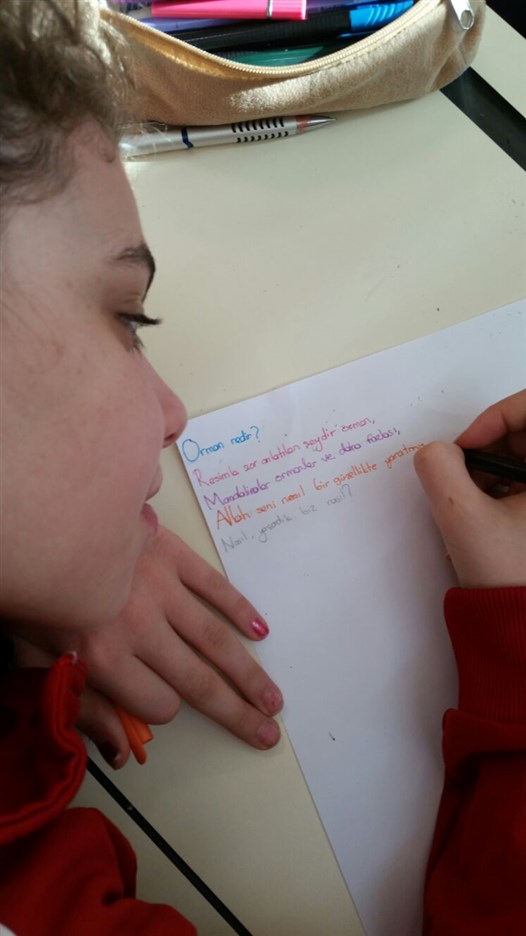 Orman nedir?
Resimle zor anlatılan şeydir orman,
Mandalinalar ormanlar ve daha fazlası,
Allah seni nasıl bir güzellikte yaratmış
Nasıl, yapardık biz nasıl?